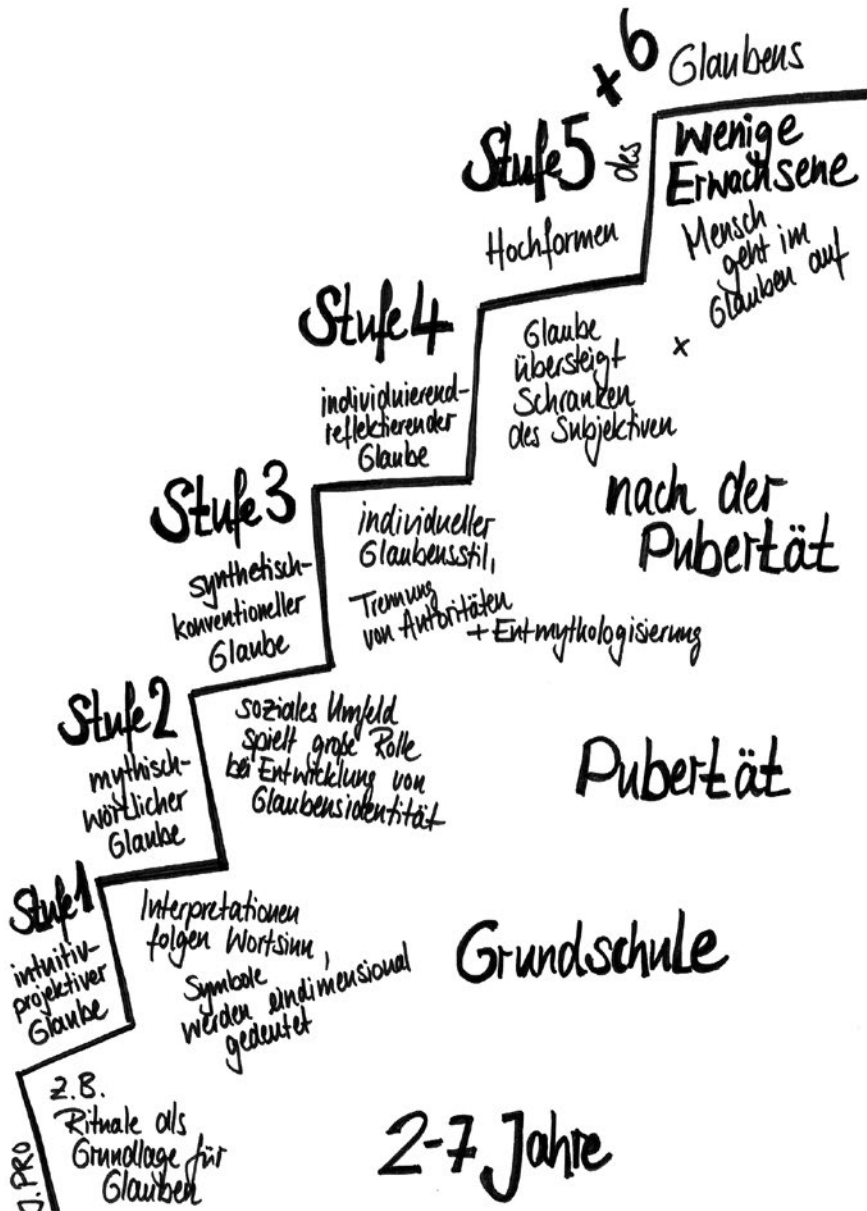 Stufe 5 + 6
Hochformen des Glaubens
wenige
Erwachsene
Mensch
geht im
Glauben auf
Stufe 4
individuierend-
reflektierender
Glaube
Glaube
übersteigt
Schranken
des Subjektiven
x
Stufe 3
synthetisch-
konventioneller
Glaube
individueller
Glaubensstil,
Trennung
von Autoritäten
+ Entmythologisierung
nach der
Pubertät
Stufe 2
mythisch-
wörtlicher
Glaube
soziales Umfeld
spielt große Rolle
bei Entwicklung von
Glaubensidentität
Pubertät
Stufe 1
intuitiv-
projektiver
Glaube
Interpretationen
folgen Wortsinn,
Symbole
werden eindimensional
gedeutet
Grundschule
z.B.
Rituale als
Grundlage für
Glauben
2-7 Jahre
.PRO